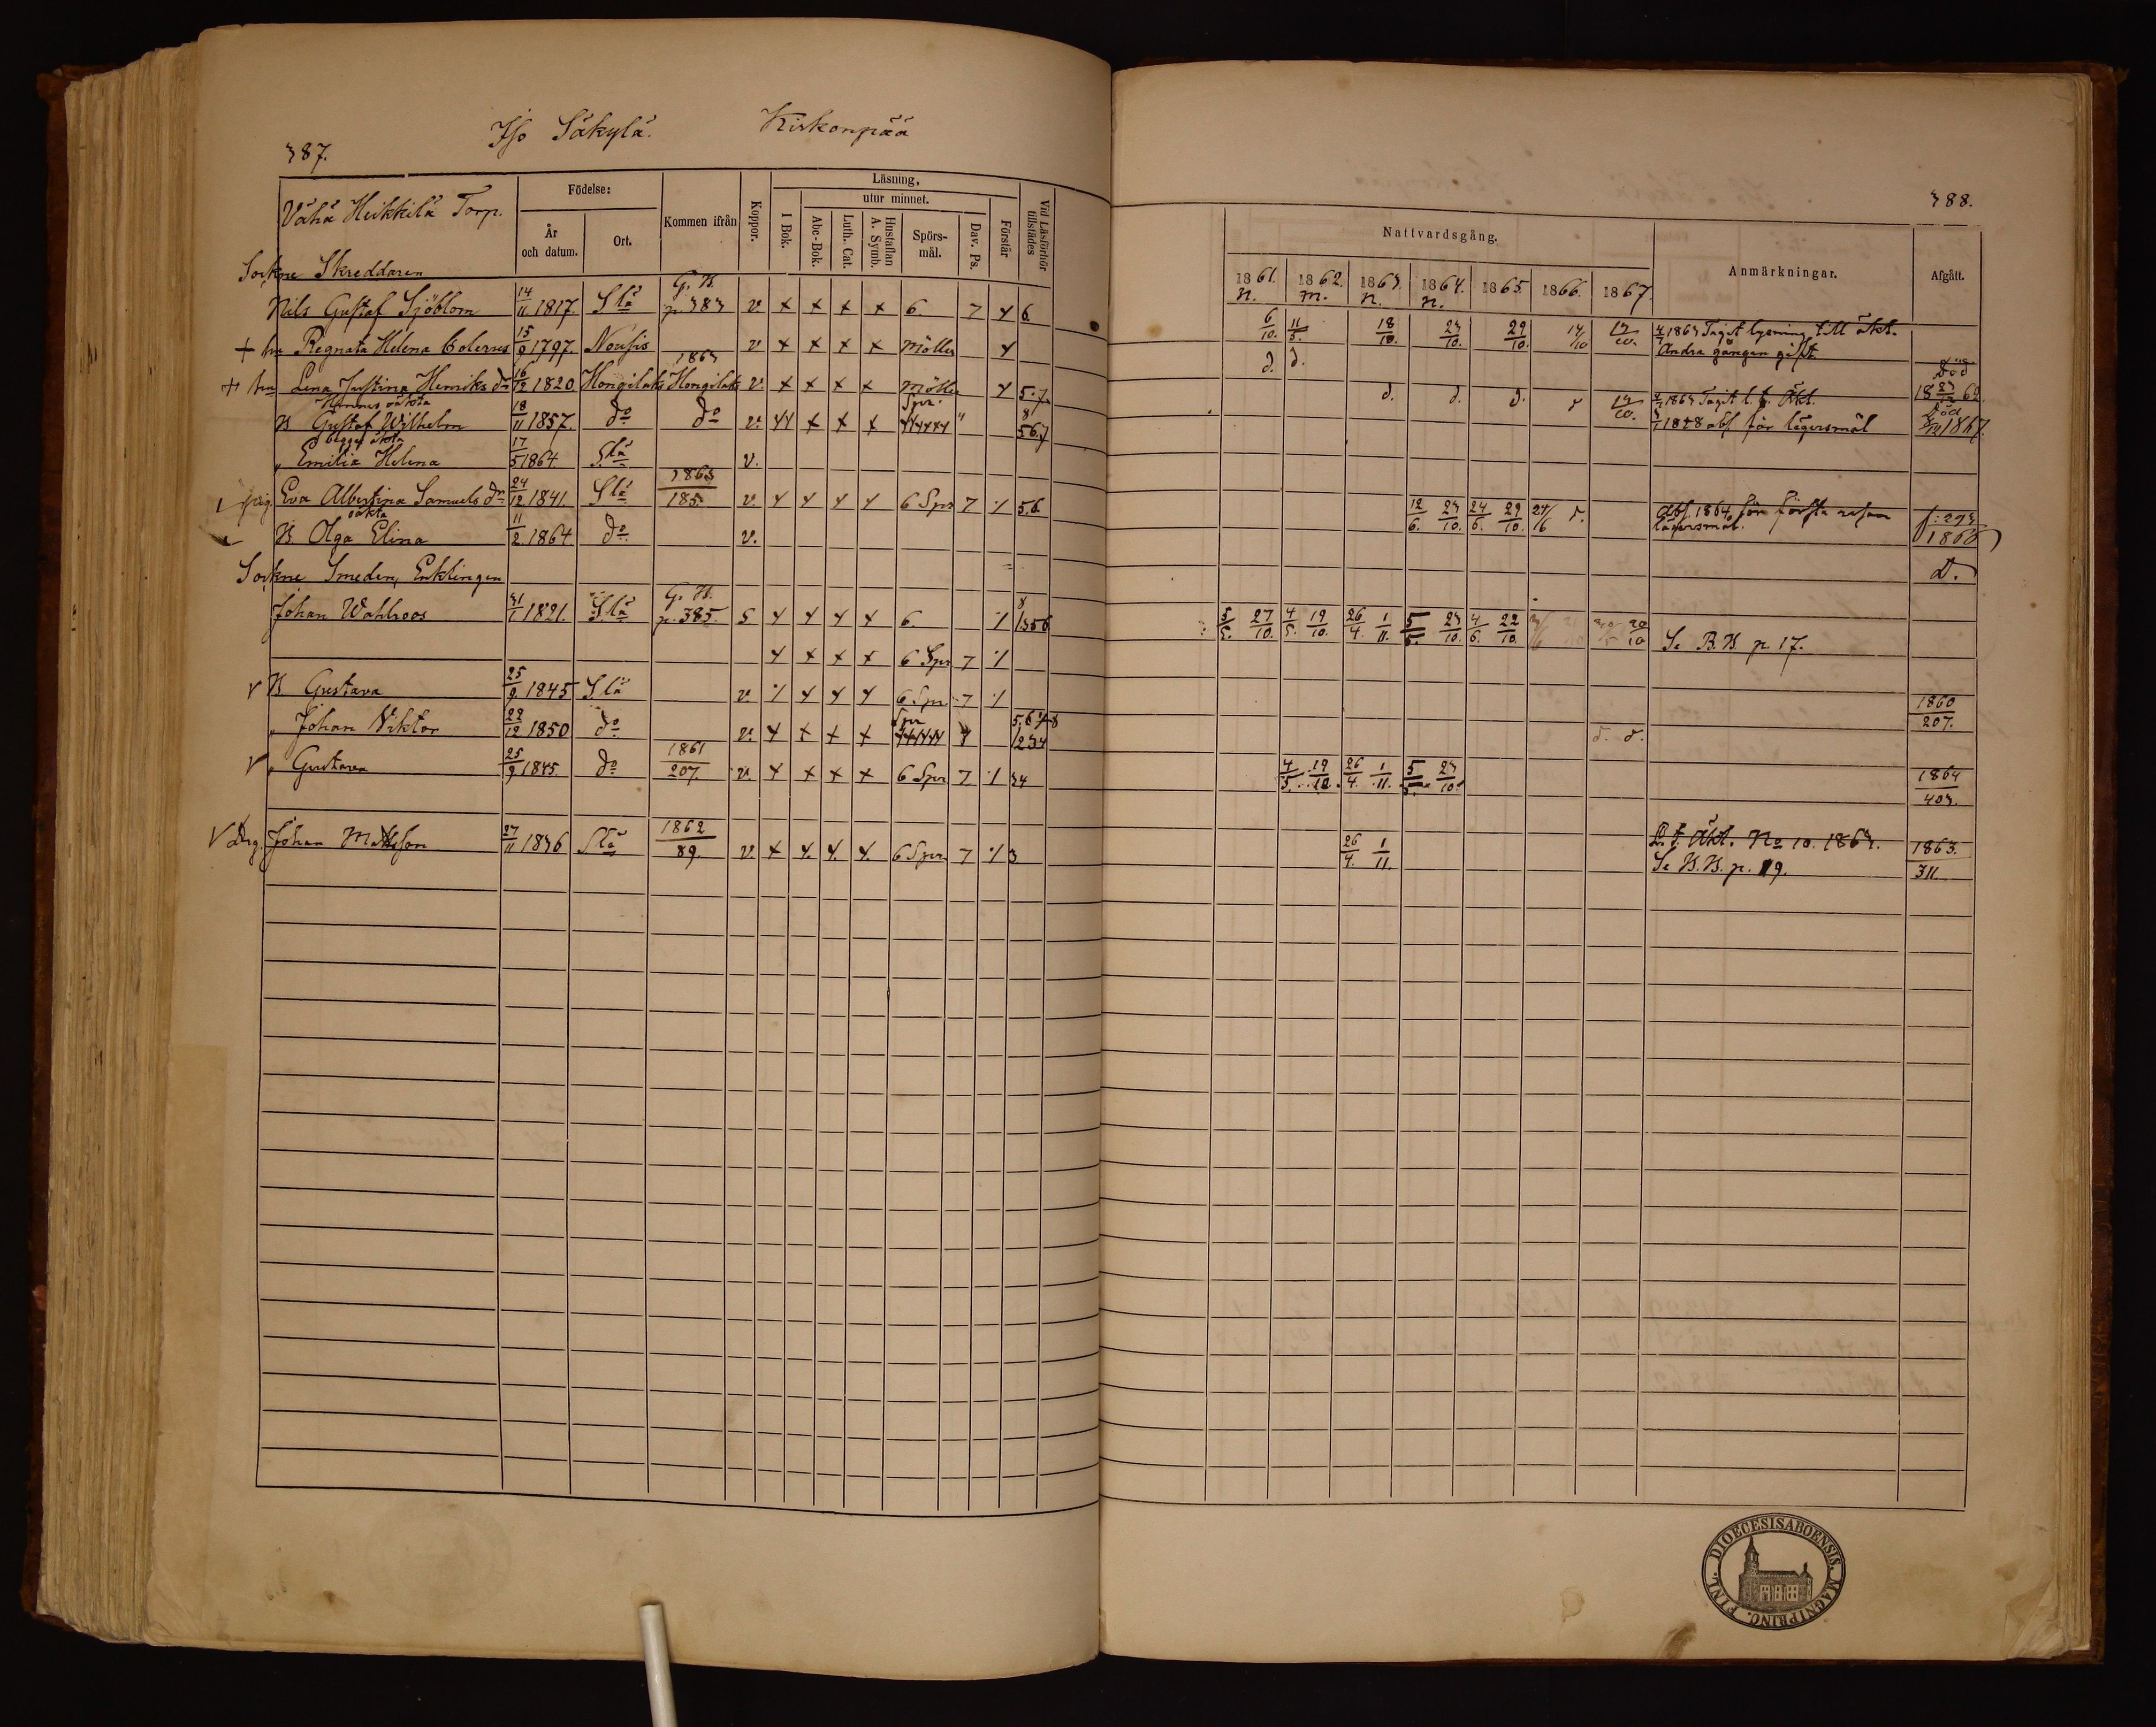 387.
Iso Säkylä. Kirkonpää
388.
Vähä Heikkilä Torp.
Födelse:
År och datum.
Ort.
Kommen ifrån
Koppor.
Läsning,
I Bok.
utur minnet.
Abc-Bok.
Luth. Cat.
Hustaflan A. Symb.
Spörs-mål.
Dav. Ps.
Förstår
Vid Läsförhör tillstädes
Nattvardsgång.
1861. 1862. 1863. 1864. 1865. 1866. 1867.
n. m. n. n.
Anmärkningar.
Afgått.
Sockne Skreddaren
Nils Gustaf Sjöblom 14/11 1817. Slä G. B. p. 383 v. x x x x 6 7 x 6 6/10. 11/5. 18/10. 23/10. 29/10. 14/10 1863 Tagit lysning till äkt. Andra gången gift
+ hu Regnata Helena 15/9 1797. Nousis v x x x x Möller x d. d. Död 1862
+ hu Lena Justina Henriks dr 16/12 1820 Hongilaks 1863 Hongilaks v. x x x x Möller x 5.7. d. d. d. 1863 Tagit l. t. Äkt. Död 1867.
Hennes oäkta
B Gustaf Wilhelm 18/11 1857. do do v. xx x x x Spr. " 8 56.7 1848 abs för lägersmål
begges äkta
" Emilia Helena 17/5 1864. Slä v.
pig. Eva Albertina Samuels dr 24/12 1841. Slä 1863/185. v. x x x x 6 Spr 7 % 5.6. 12/6. 23/10. 24/6. 29/10. 24/6 Abs. 1864 för första resan lägersmål. 1866
oäkta
B. Olga Elina 11/2. 1864 do v. D.
Sockne Smeden, Enklingen
Johan Wahlroos 31/1 1821. Slä G. B. p. 385. 5 x x x x 6. % 5/5. 27/10. 4/5. 19/10. 26/4. 1/11. 5/5. 23/10. 4/6. 22/10 30/10 Se B. B. p. 17.
x x x x 6 Spr 7 %
v B Gustava 25/9. 1845 Slä v. % x x x 6 Spr 7 % 1860/207.
" Johan Viktor 22/12 1850 do v. x x x x Spr 1234 d. d.
v " Gustava 25/9 1845. do 1861/207. v. x x x x 6 Spr 7 % 34 4/5. 19/10. 26/4. 1/11. 5/5. 23/10. 1864/403.
v Drg. Johan Mattsson 27/11 1836 Slä 1862/89. v. x x. x. x. 6 Spr 7 % 3 26/4. 1/11. L. t. Äkt. No 10. 1863. Se B. B. p. 19. 1863./311.
FINL. DIOECESIS ABOENSIS. MAGNI PRINC.